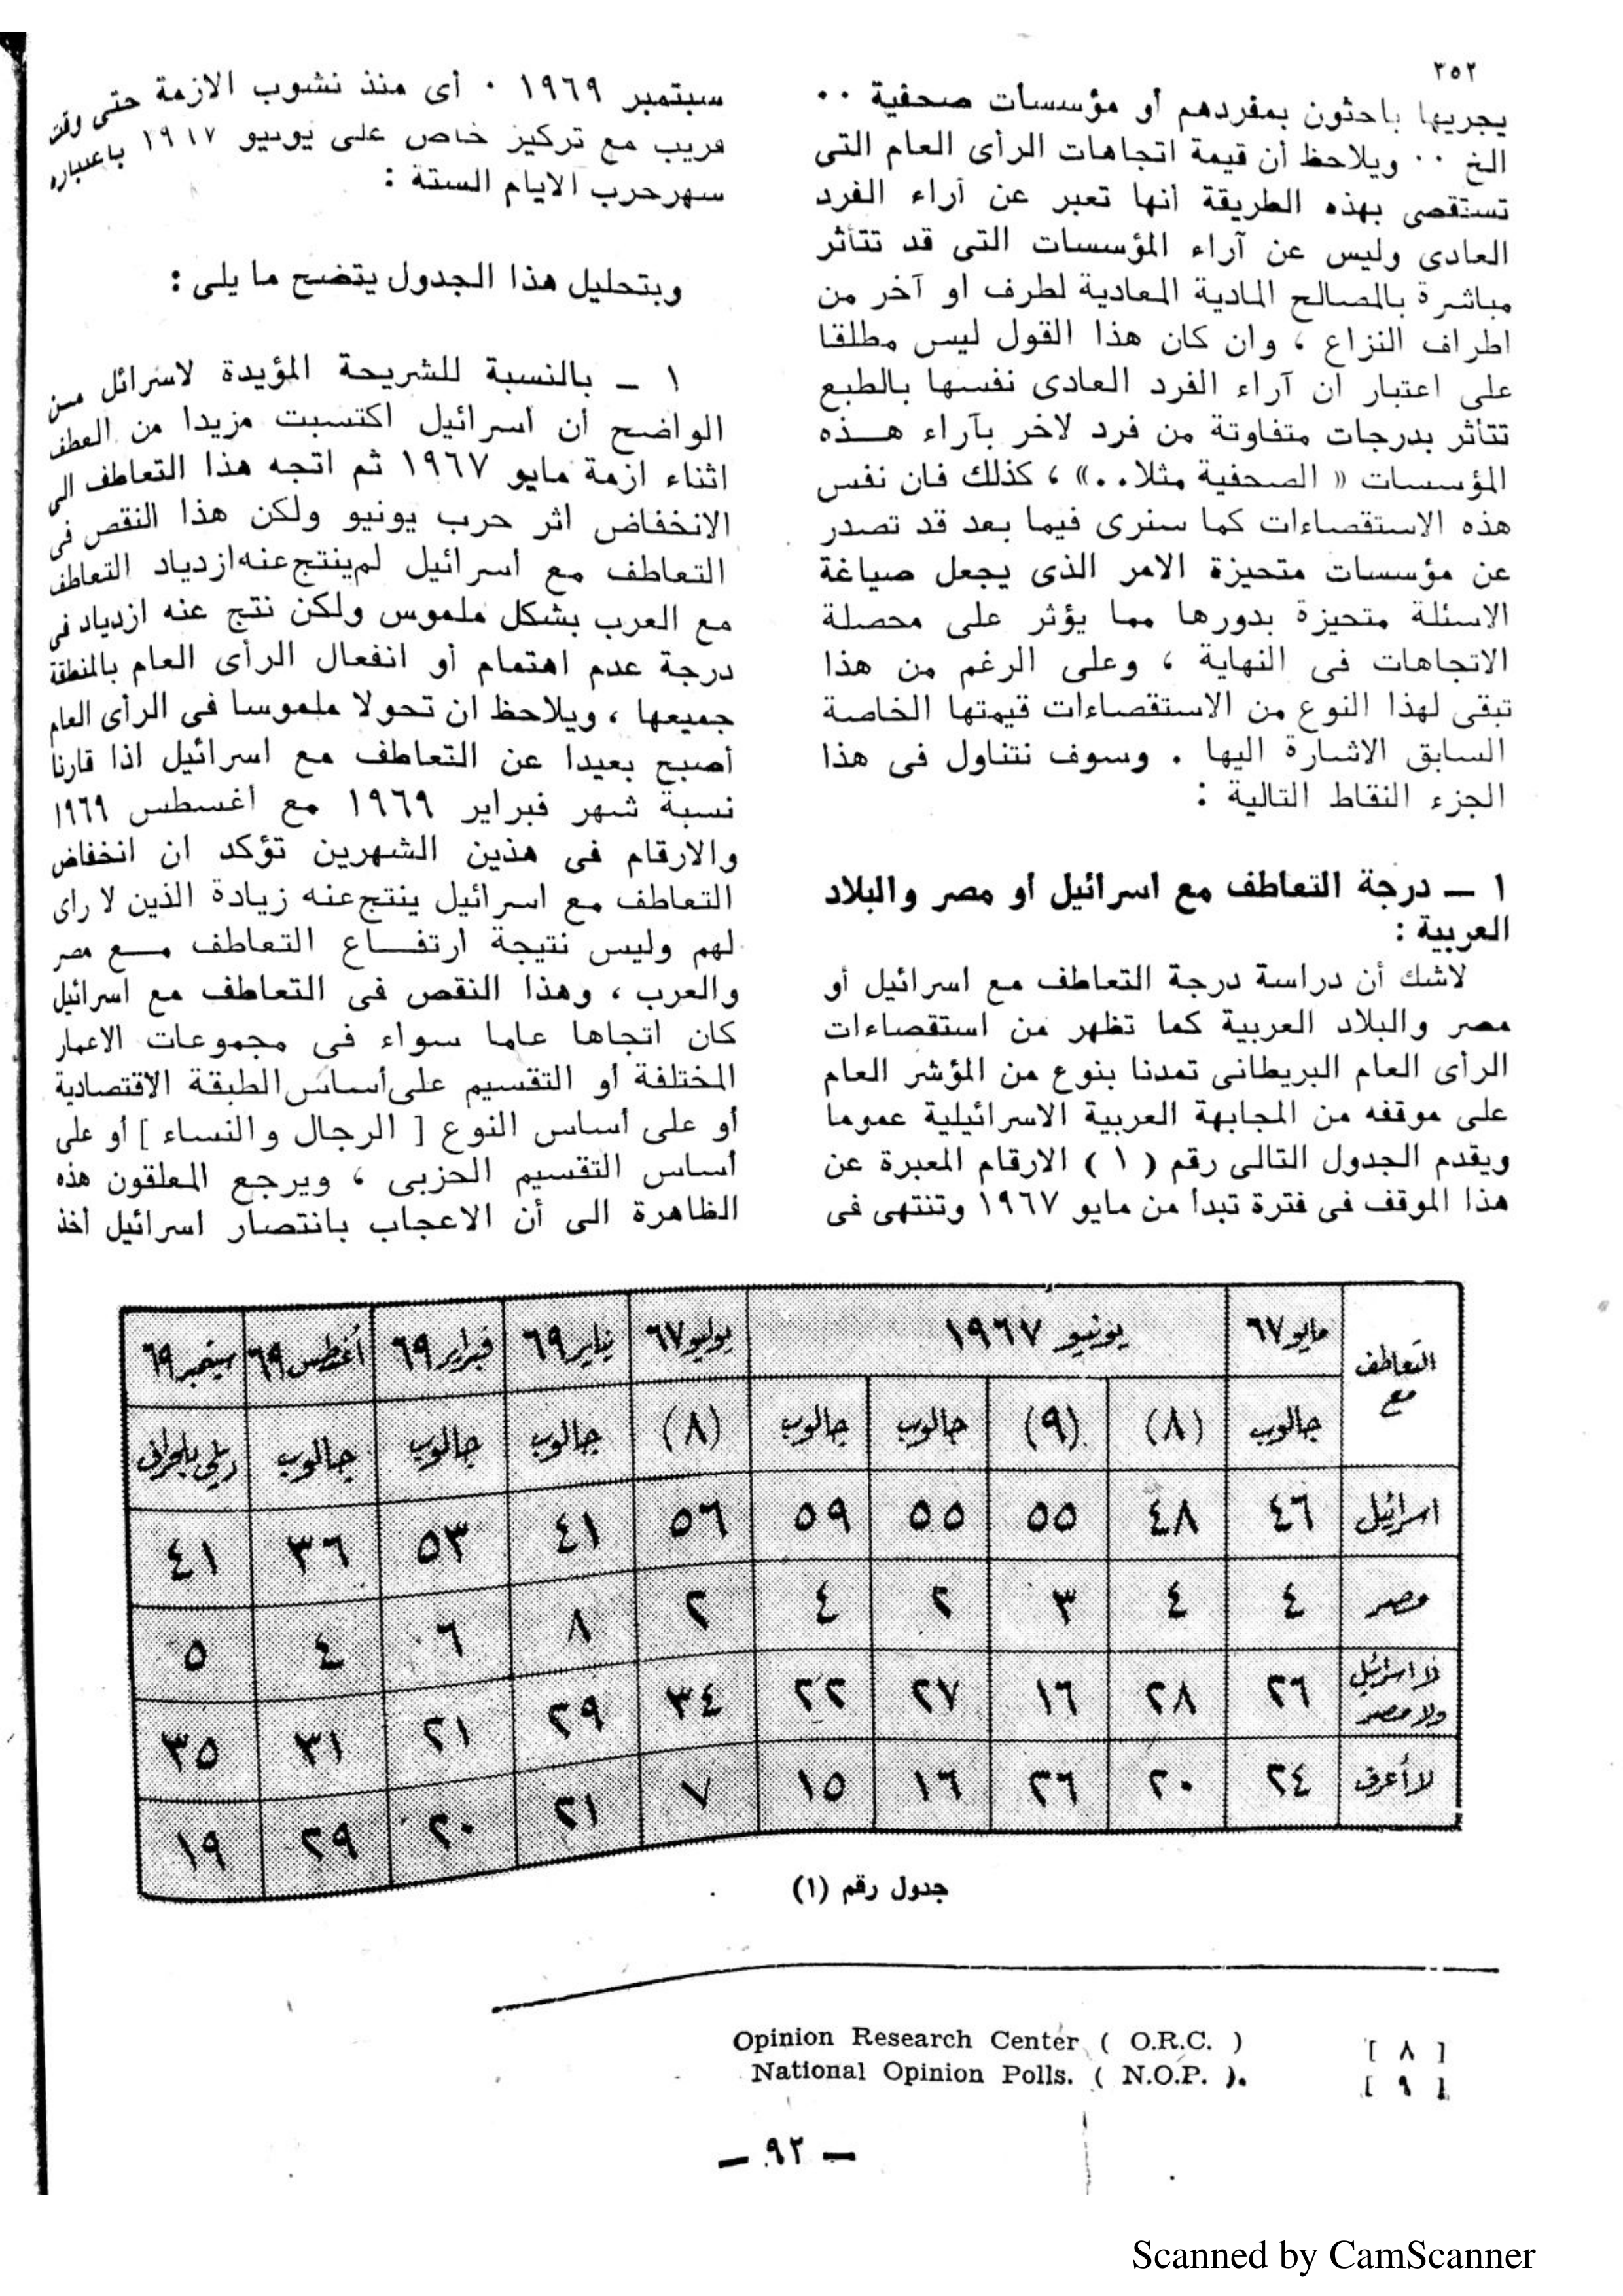 ٣٥٢
يجريها باحثون بمفردهم أو مؤسسات صحفية ٠٠
الخ ٠٠ ويلاحظ أن قيمة اتجاهات الرأى العام التى
تستقصى بهذه الطريقة أنها تعبر عن آراء الفرد
العادى وليس عن آراء المؤسسات التى قد تتأثر
مباشرة بالمصالح المادية المعادية لطرف او آخر من
اطراف النزاع ، وان كان هذا القول ليس مطلقا
على اعتبار ان آراء الفرد العادى نفسها بالطبع
تتأثر بدرجات متفاوتة من فرد لاخر بآراء هـــذه
المؤسسات « الصحفية مثلا..» ، كذلك فان نفس
هذه الاستقصاءات كما سنرى فيما بعد قد تصدر
عن مؤسسات متحيزة الامر الذى يجعل صياغة
الاسئلة متحيزة بدورها مما يؤثر على محصلة
الاتجاهات فى النهاية ، وعلى الرغم من هذا
تبقى لهذا النوع من الاستقصاءات قيمتها الخاصة
السابق الاشارة اليها . وسوف نتناول فى هذا
الجزء النقاط التالية :
١ ـ درجة التعاطف مع اسرائيل أو مصر والبلاد
العربية :
لاشك أن دراسة درجة التعاطف مع اسرائيل أو
مصر والبلاد العربية كما تظهر من استقصاءات
الرأى العام البريطانى تمدنا بنوع من المؤشر العام
على موقفه من المجابهة العربية الاسرائيلية عموما
ويقدم الجدول التالى رقم ( ١ ) الارقام المعبرة عن
هذا الموقف فى فترة تبدأ من مايو ١٩٦٧ وتنتهى فى
سبتمبر ١٩٦٩ ٠ أى منذ نشوب الازمة حتى وقت
قريب مع تركيز خاص على يونيو ١٩٦٧ باعتباره
شهرحرب الايام الستة :
وبتحليل هذا الجدول يتضح ما يلى :
١ ـ بالنسبة للشريحة المؤيدة لاسرائل مـن
الواضح أن اسرائيل اكتسبت مزيدا من العطف
اثناء ازمة مايو ١٩٦٧ ثم اتجه هذا التعاطف الى
الانخفاض اثر حرب يونيو ولكن هذا النقص فى
التعاطف مع اسرائيل لم ينتج عنه ازدياد التعاطف
مع العرب بشكل ملموس ولكن نتج عنه ازدياد فى
درجة عدم اهتمام أو انفعال الرأى العام بالمنطقة
جميعها ، ويلاحظ ان تحولا ملموسا فى الرأى العام
أصبح بعيدا عن التعاطف مع اسرائيل اذا قارنا
نسبة شهر فبراير ١٩٦٩ مع أغسطس ١٩٦٩
والارقام فى هذين الشهرين تؤكد ان انخفاض
التعاطف مع اسرائيل ينتج عنه زيادة الذين لا راى
لهم وليس نتيجة ارتفـــاع التعاطف مـــع مصر
والعرب ، وهذا النقص فى التعاطف مع اسرائيل
كان اتجاها عاما سواء فى مجموعات الاعمار
المختلفة أو التقسيم على أساس الطبقة الاقتصادية
أو على أساس النوع [ الرجال والنساء ] أو على
أساس التقسيم الحزبى ، ويرجع المعلقون هذه
الظاهرة الى أن الاعجاب بانتصار اسرائيل أخذ
التعاطف مع مايو٦٧ يونيو ١٩٦٧ يوليو٦٧ يناير٦٩ فبراير٦٩ أغسطس٦٩ سبتمبر٦٩
جالوب (٨) (٩) جالوب جالوب (٨) جالوب جالوب جالوب
اسرائيل ٤٦ ٤٨ ٥٥ ٥٥ ٥٩ ٥٦ ٤١ ٥٣ ٣٦ ٤١
مصر ٤ ٤ ٣ ٢ ٤ ٢ ٨ ٦ ٤ ٥
لا اسرائيل ولا مصر ٢٦ ٢٨ ١٦ ٢٧ ٢٢ ٣٤ ٢٩ ٢١ ٣١ ٣٥
لا أعرف ٢٤ ٢٠ ٢٦ ١٦ ١٥ ٧ ٢١ ٢٠ ٢٩ ١٩
جدول رقم (١)
[ ٨ ] Opinion Research Center ( O.R.C. )
[ ٩ ] National Opinion Polls. ( N.O.P. ).
— ٩٢ —
Scanned by CamScanner